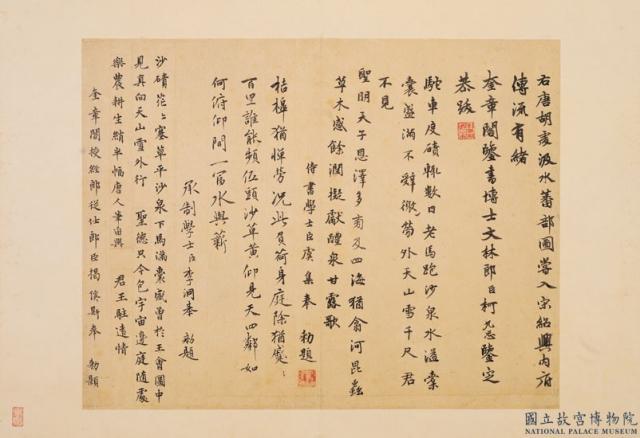 右唐胡虔汲水蕃部圖嘗入宋紹興內府
傳流有緒
奎章閣鑒書博士文林郎臣柯九思鑒定
恭跋
駝車度磧載數日老馬跑沙泉水溢橐
囊盛滿不辭微勞外天山雪千尺君
不見
聖明天子恩澤多南及四海猶翕河昆蟲
草木感餘潤擬獻醴泉甘露歌
侍書學士臣虞集奉 勅題
桔槹猶憚勞況此負荷身庭除猶
百里誰能頻伍頭沙草黃仰見天四鄰如
何府仰間一富水與薪
承制學士臣李泂奉 勅題
沙磧茫茫塞草平沙泉下馬滿囊盛曾於王會圖中
見真向天山雪外行 聖德只今包宇宙邊庭隨處
樂農耕生綃半幅唐人筆留與 君王駐遠情
奎章閣授經郎從仕郎臣揭傒斯奉 勅題
國立故宮博物院
NATIONAL PALACE MUSEUM